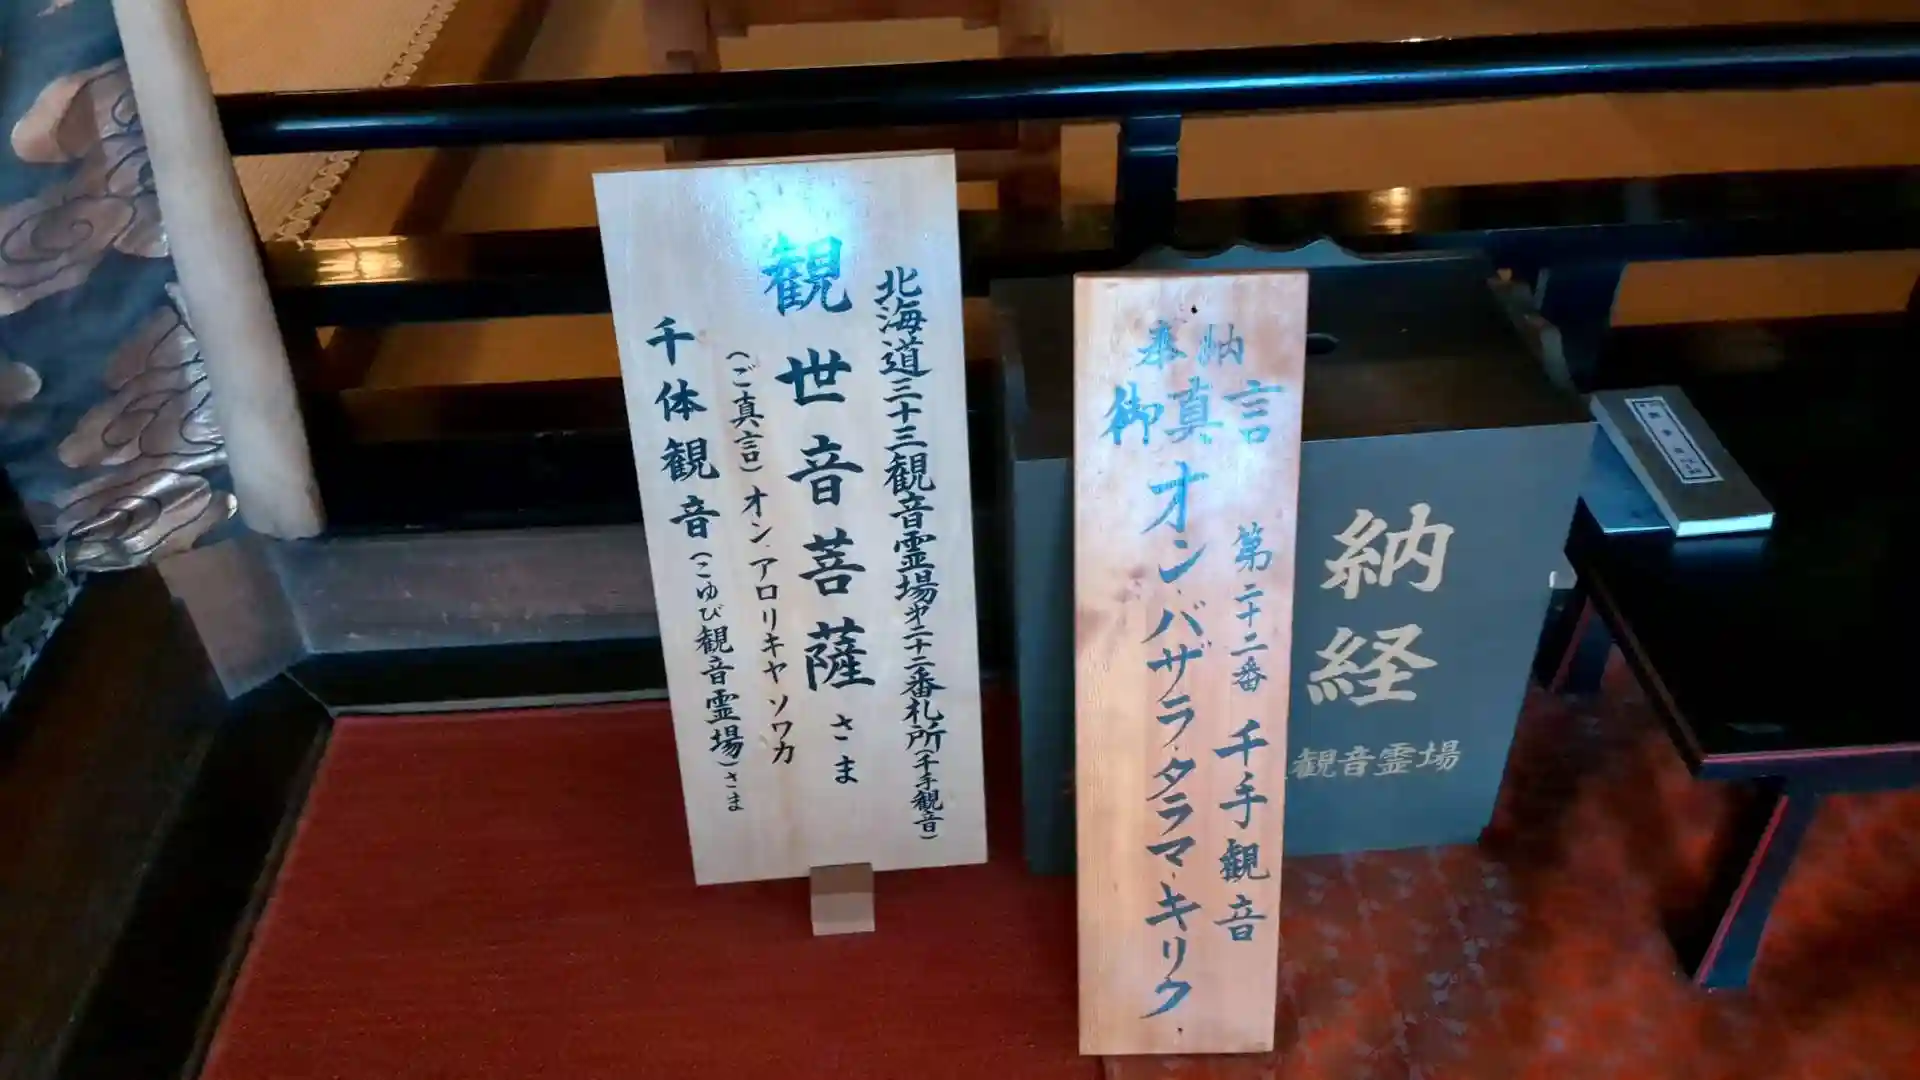 北海道三十三観音霊場第二十二番札所(千手観音)
観世音菩薩さま
(ご真言)オン.アロリキャソワカ
千体観音(こゆび観音霊場)さま
奉納
御真言
第二十二番 千手観音
オン.バザラ.タラマ.キリク
納経
観音霊場